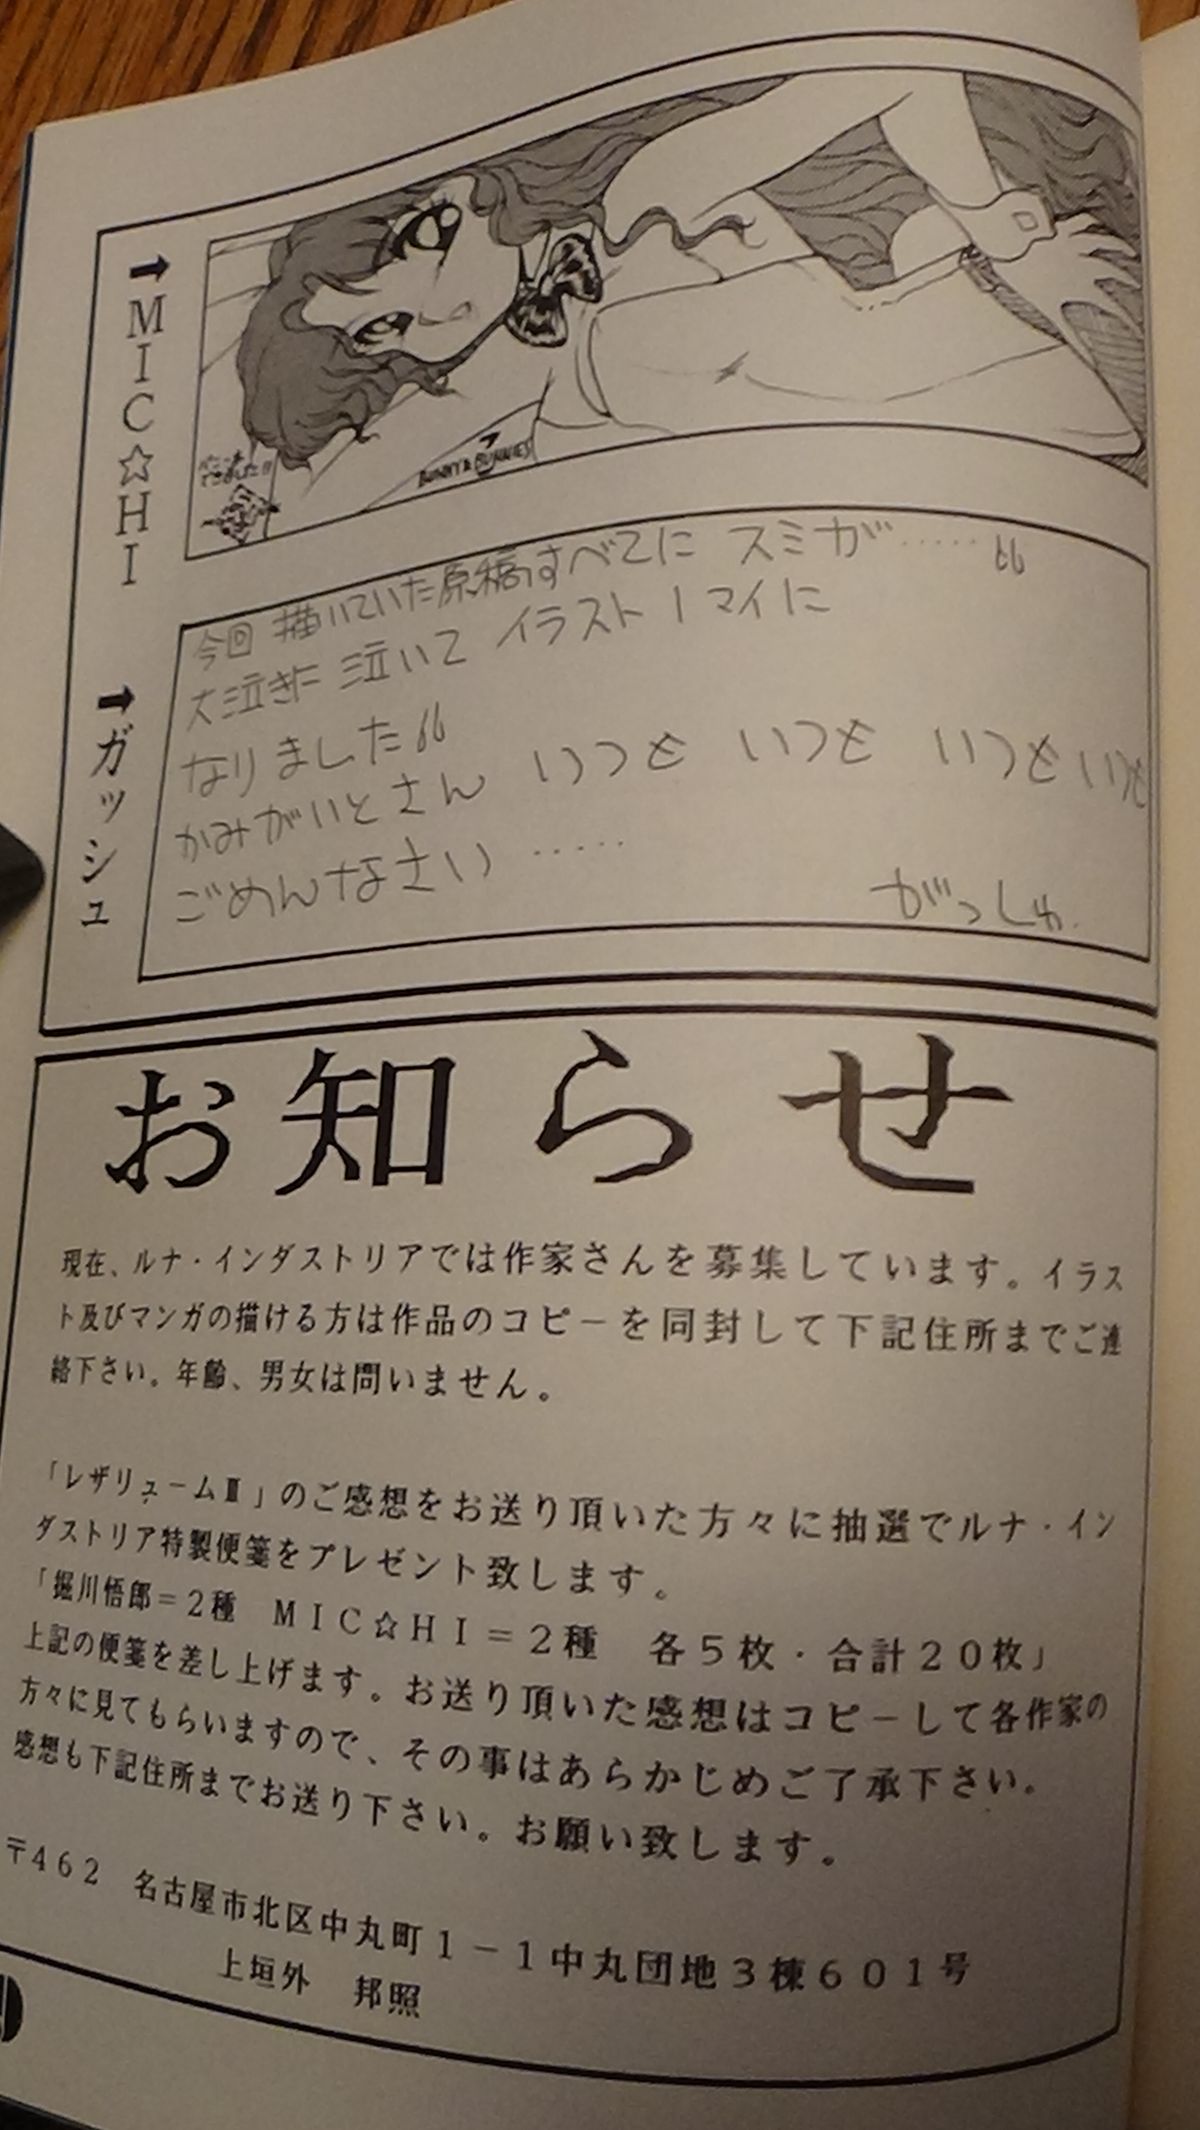 →MIC☆HI
BUNNY & BUNNIES
今回 描いていた原稿すべてに スミガ……
大泣きに 泣いて イラスト1マイに
なりました
かみがいとさん いつも いつも いつも いつも
ごめんなさい ……
がっしゅ.
→ガッシュ
お知らせ
現在、ルナ・インダストリアでは作家さんを募集しています。イラス
ト及びマンガの描ける方は作品のコピーを同封して下記住所までご連
絡下さい。年齢、男女は問いません。
「レザリュームⅢ」のご感想をお送り頂いた方々に抽選でルナ・イン
ダストリア特製便箋をプレゼント致します。
「堀川悟郎=2種 MIC☆HI=2種 各5枚・合計20枚」
上記の便箋を差し上げます。お送り頂いた感想はコピーして各作家の
方々に見てもらいますので、その事はあらかじめご了承下さい。
感想も下記住所までお送り下さい。お願い致します。
〒462 名古屋市北区中丸町1-1中丸団地3棟601号
上垣外 邦照